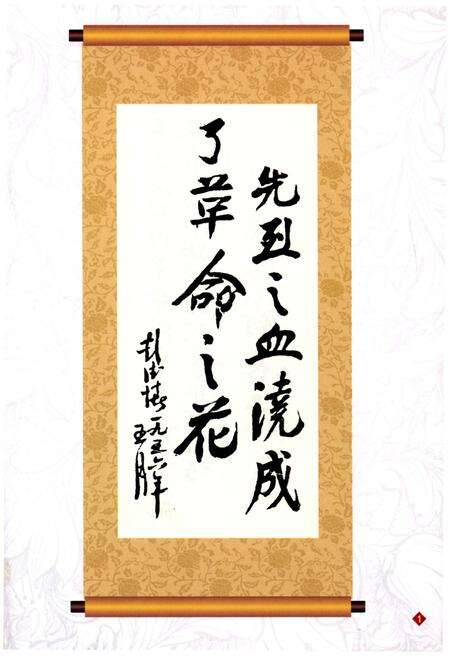 先烈之血浇成
了革命之花
彭德怀一九五六年
五月
1